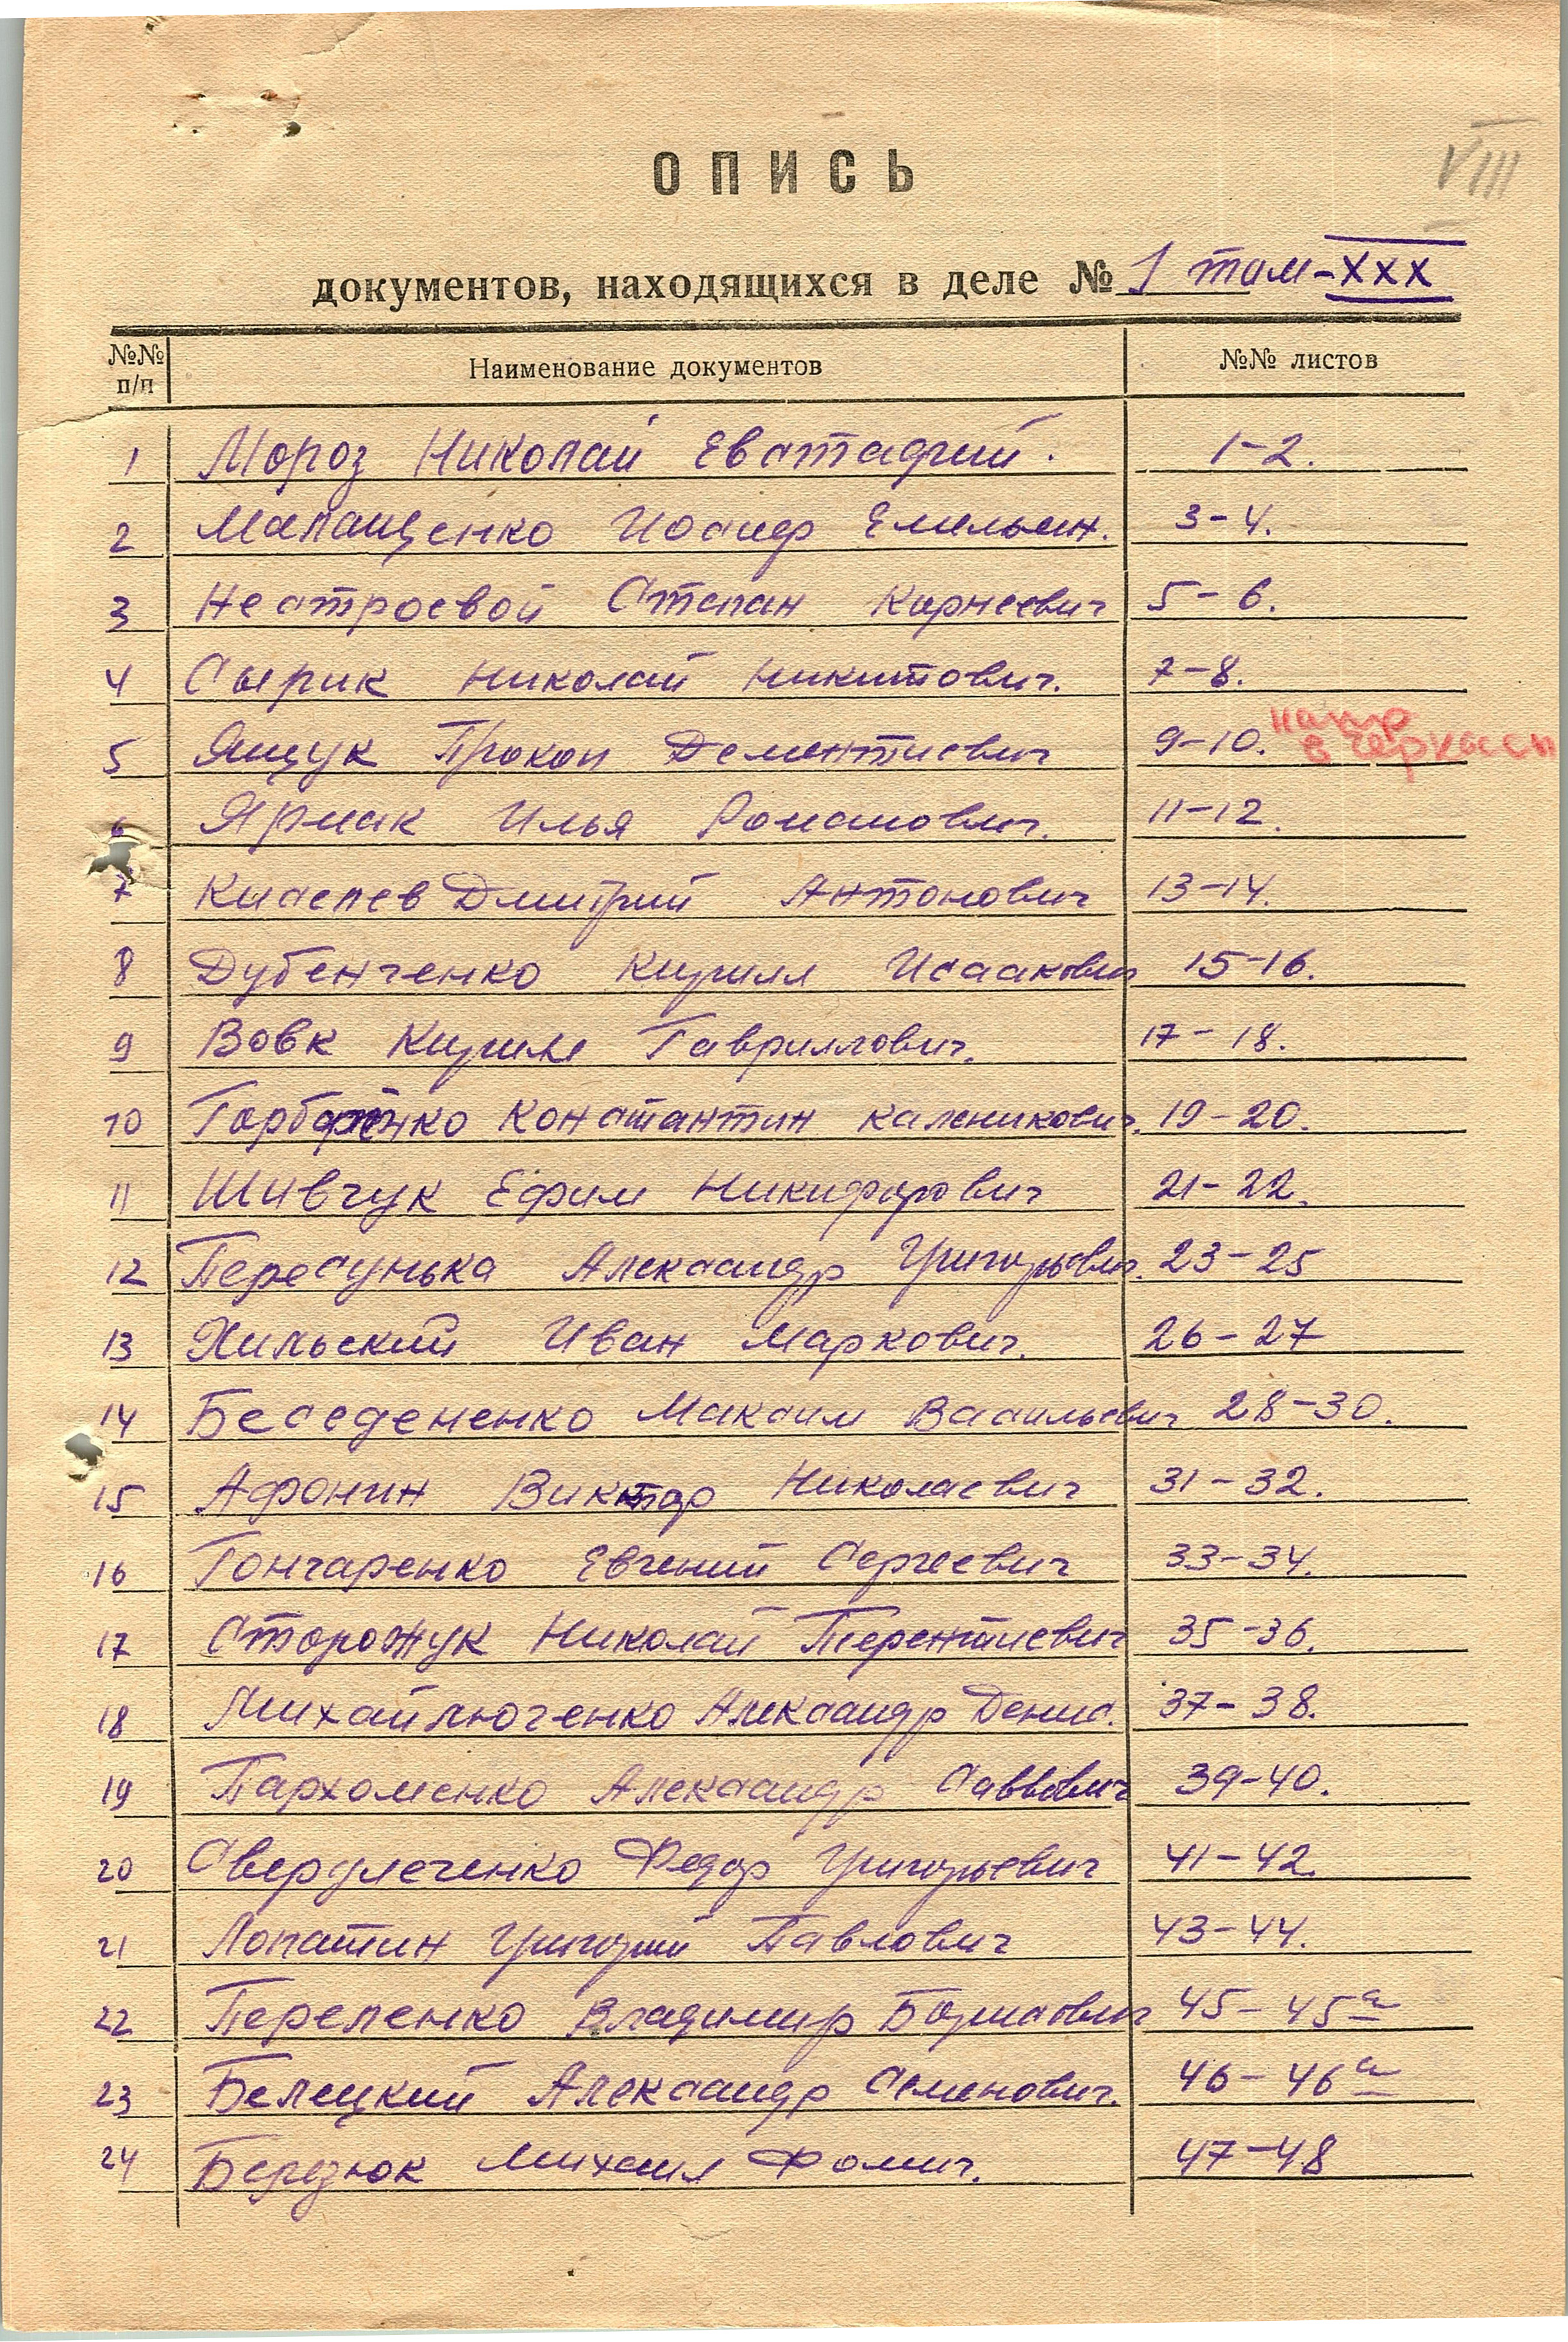 VIII
ОПИСЬ
документов, находящихся в деле № 1 том-XXX
№№ п/п Наименование документов №№ листов
1 Мороз Николай Евстафий. 1-2.
2 Малащенко Иосиф Емельян. 3-4.
3 Нестроевой Степан Корнеевич 5-6.
4 Сырик Николай Никитович. 7-8.
5 Ящук Прокоп Дементиевич 9-10. напр в Черкассы
6 Ярмак Илья Романович. 11-12.
7 Киселев Дмитрий Антонович 13-14.
8 Дубенченко Кирилл Исаакович 15-16.
9 Вовк Кирилл Гавриллович. 17-18.
10 Константин Каленикович. 19-20.
11 Шивчук Ефим Никифорович 21-22.
12 Пересунька Александр Григорьевич. 23-25
13 Хильский Иван Маркович. 26-27
14 Беседененко Максим Васильевич 28-30.
15 Афонин Виктор Николаевич 31-32.
16 Гончаренко Евгений Сергеевич 33-34.
17 Сторожук Николай Терентиевич 35-36.
18 Михайлюченко Александр Денис. 37-38.
19 Пархоменко Александр Саввович 39-40.
20 Свердлеченко Федор Григорьевич 41-42.
21 Лопатин Григорий Павлович 43-44.
22 Перепенко Владимир Борисович 45-45а
23 Белецкий Александр Семенович. 46-46а
24 Березюк Михаил Фомич. 47-48